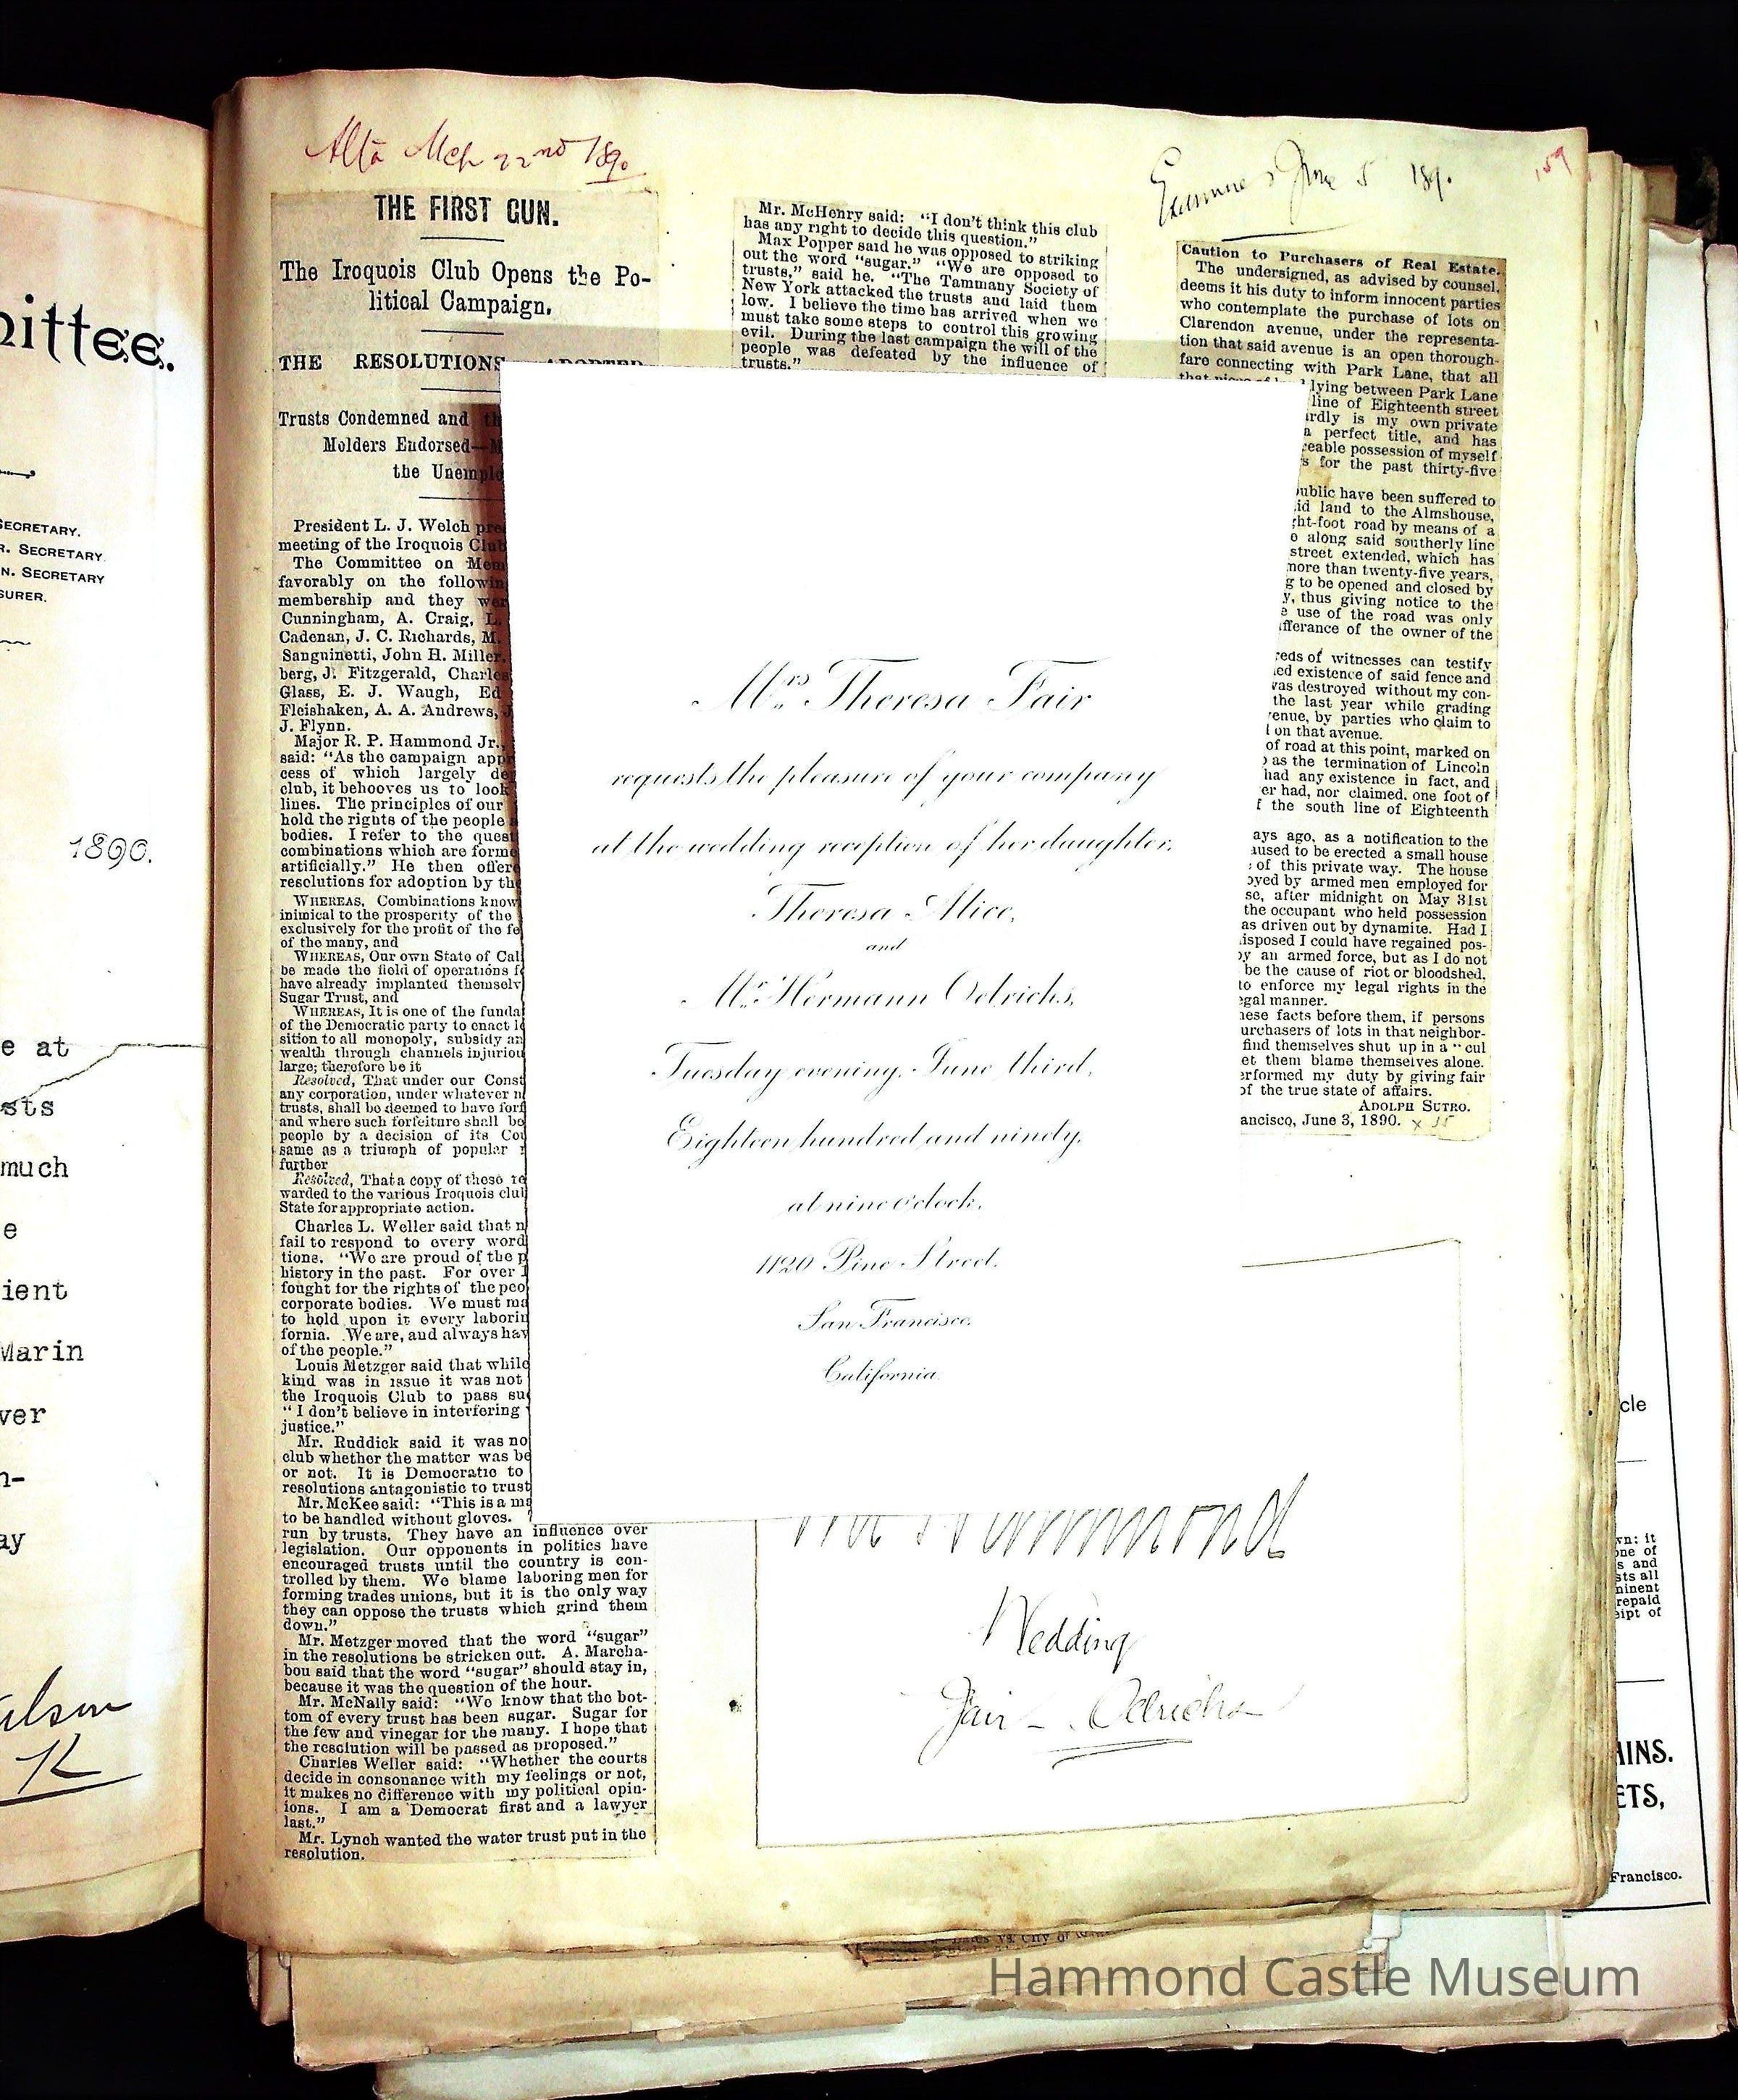 Alta Mch 22nd 1890
THE FIRST GUN.
The Iroquois Club Opens the Po-
litical Campaign.
THE RESOLUTIONS ADOPTED
Trusts Condemned and th
Molders Endorsed—M
the Unemplo
President L. J. Welch pre
meeting of the Iroquois Club
The Committee on Mem
favorably on the followin
membership and they wer
Cunningham, A. Craig, L.
Cadenan, J. C. Richards, M.
Sanguinetti, John H. Miller,
berg, J. Fitzgerald, Charles
Glass, E. J. Waugh, Ed
Fleishaken, A. A. Andrews, J
J. Flynn.
Major R. P. Hammond Jr.,
said: “As the campaign app
cess of which largely de
club, it behooves us to look
lines. The principles of our
hold the rights of the people a
bodies. I refer to the quest
combinations which are forme
artificially.” He then offere
resolutions for adoption by the
WHEREAS, Combinations know
inimical to the prosperity of the
exclusively for the profit of the fe
of the many, and
WHEREAS, Our own State of Cal
be made the field of operations f
have already implanted themselv
Sugar Trust, and
WHEREAS, It is one of the funda
of the Democratic party to enact l
sition to all monopoly, subsidy an
wealth through channels injuriou
large; therefore be it
Resolved, That under our Const
any corporation, under whatever n
trusts, shall be deemed to have forf
and where such forfeiture shall be
people by a decision of its Cou
same as a triumph of popular r
further
Resolved, That a copy of these re
warded to the various Iroquois clu
State for appropriate action.
Charles L. Weller said that n
fail to respond to every word
tions. “We are proud of the p
history in the past. For over 1
fought for the rights of the peo
corporate bodies. We must ma
to hold upon it every laborin
fornia. We are, and always hav
of the people.”
Louis Metzger said that while
kind was in issue it was not
the Iroquois Club to pass su
“I don’t believe in interfering
justice.”
Mr. Ruddick said it was no
club whether the matter was be
or not. It is Democratic to
resolutions antagonistic to trust
Mr. McKee said: “This is a ma
to be handled without gloves.
run by trusts. They have an influence over
legislation. Our opponents in politics have
encouraged trusts until the country is con-
trolled by them. We blame laboring men for
forming trades unions, but it is the only way
they can oppose the trusts which grind them
down.”
Mr. Metzger moved that the word “sugar”
in the resolutions be stricken out. A. Marcha-
bou said that the word “sugar” should stay in,
because it was the question of the hour.
Mr. McNally said: “We know that the bot-
tom of every trust has been sugar. Sugar for
the few and vinegar for the many. I hope that
the resolution will be passed as proposed.”
Charles Weller said: “Whether the courts
decide in consonance with my feelings or not,
it makes no difference with my political opin-
ions. I am a Democrat first and a lawyer
last.”
Mr. Lynch wanted the water trust put in the
resolution.
Mr. McHenry said: “I don’t think this club
has any right to decide this question.”
Max Popper said he was opposed to striking
out the word “sugar.” “We are opposed to
trusts,” said he. “The Tammany Society of
New York attacked the trusts and laid them
low. I believe the time has arrived when we
must take some steps to control this growing
evil. During the last campaign the will of the
people was defeated by the influence of
trusts.”
Examiner June 5 189.
159
Caution to Purchasers of Real Estate.
The undersigned, as advised by counsel,
deems it his duty to inform innocent parties
who contemplate the purchase of lots on
Clarendon avenue, under the representa-
tion that said avenue is an open thorough-
fare connecting with Park Lane, that all
lying between Park Lane
line of Eighteenth street
rdly is my own private
a perfect title, and has
eable possession of myself
s for the past thirty-five
ublic have been suffered to
id land to the Almshouse,
ht-foot road by means of a
o along said southerly line
street extended, which has
more than twenty-five years,
g to be opened and closed by
y, thus giving notice to the
e use of the road was only
fferance of the owner of the
reds of witnesses can testify
ed existence of said fence and
was destroyed without my con-
the last year while grading
enue, by parties who claim to
t on that avenue.
of road at this point, marked on
as the termination of Lincoln
had any existence in fact, and
er had, nor claimed, one foot of
f the south line of Eighteenth
ays ago, as a notification to the
aused to be erected a small house
of this private way. The house
oyed by armed men employed for
se, after midnight on May 31st
the occupant who held possession
as driven out by dynamite. Had I
isposed I could have regained pos-
by an armed force, but as I do not
be the cause of riot or bloodshed,
to enforce my legal rights in the
egal manner.
hese facts before them, if persons
urchasers of lots in that neighbor-
find themselves shut up in a “cul
et them blame themselves alone.
erformed my duty by giving fair
of the true state of affairs.
ADOLPH SUTRO.
ancisco, June 3, 1890. x 15
Mrs. Theresa Fair
requests the pleasure of your company
at the wedding reception of her daughter,
Theresa Alice,
and
Mr. Hermann Oelrichs,
Tuesday evening, June third,
Eighteen hundred and ninety,
at nine o'clock,
1120 Pine Street,
San Francisco,
California.
Hammond
Wedding
Fair - Oelrichs
ittee.
SECRETARY.
R. SECRETARY
N. SECRETARY
SURER.
1890.
e at
sts
much
e
ient
Marin
ver
n-
ay
K
cle
wn: it
one of
s and
sts all
minent
repaid
eipt of
AINS.
ETS,
Francisco.
Hammond Castle Museum